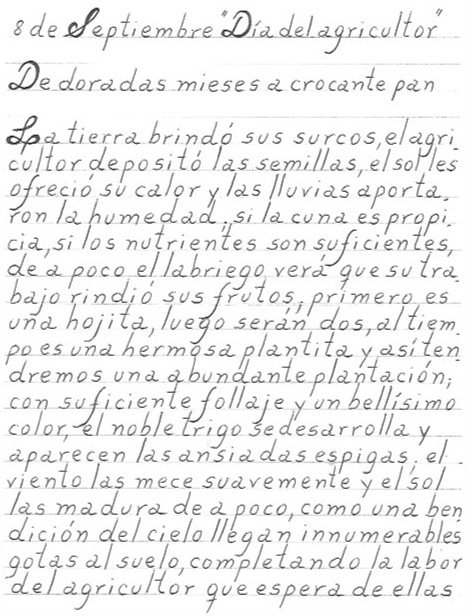 8 de Septiembre "Día del agricultor"
De doradas mieses a crocante pan
La tierra brindó sus surcos, el agri-
cultor depositó las semillas, el sol les
ofreció su calor y las lluvias aporta-
ron la humedad; si la cuna es propi-
cia, si los nutrientes son suficientes,
de a poco el labriego verá que su tra-
bajo rindió sus frutos; primero es
una hojita, luego serán dos, al tiem-
po es una hermosa plantita y así ten-
dremos una abundante plantación;
con suficiente follaje y un bellísimo
color, el noble trigo se desarrolla y
aparecen las ansiadas espigas; el
viento las mece suavemente y el sol
las madura de a poco, como una ben-
dición del cielo llegan innumerables
gotas al suelo, completando la labor
del agricultor que espera de ellas